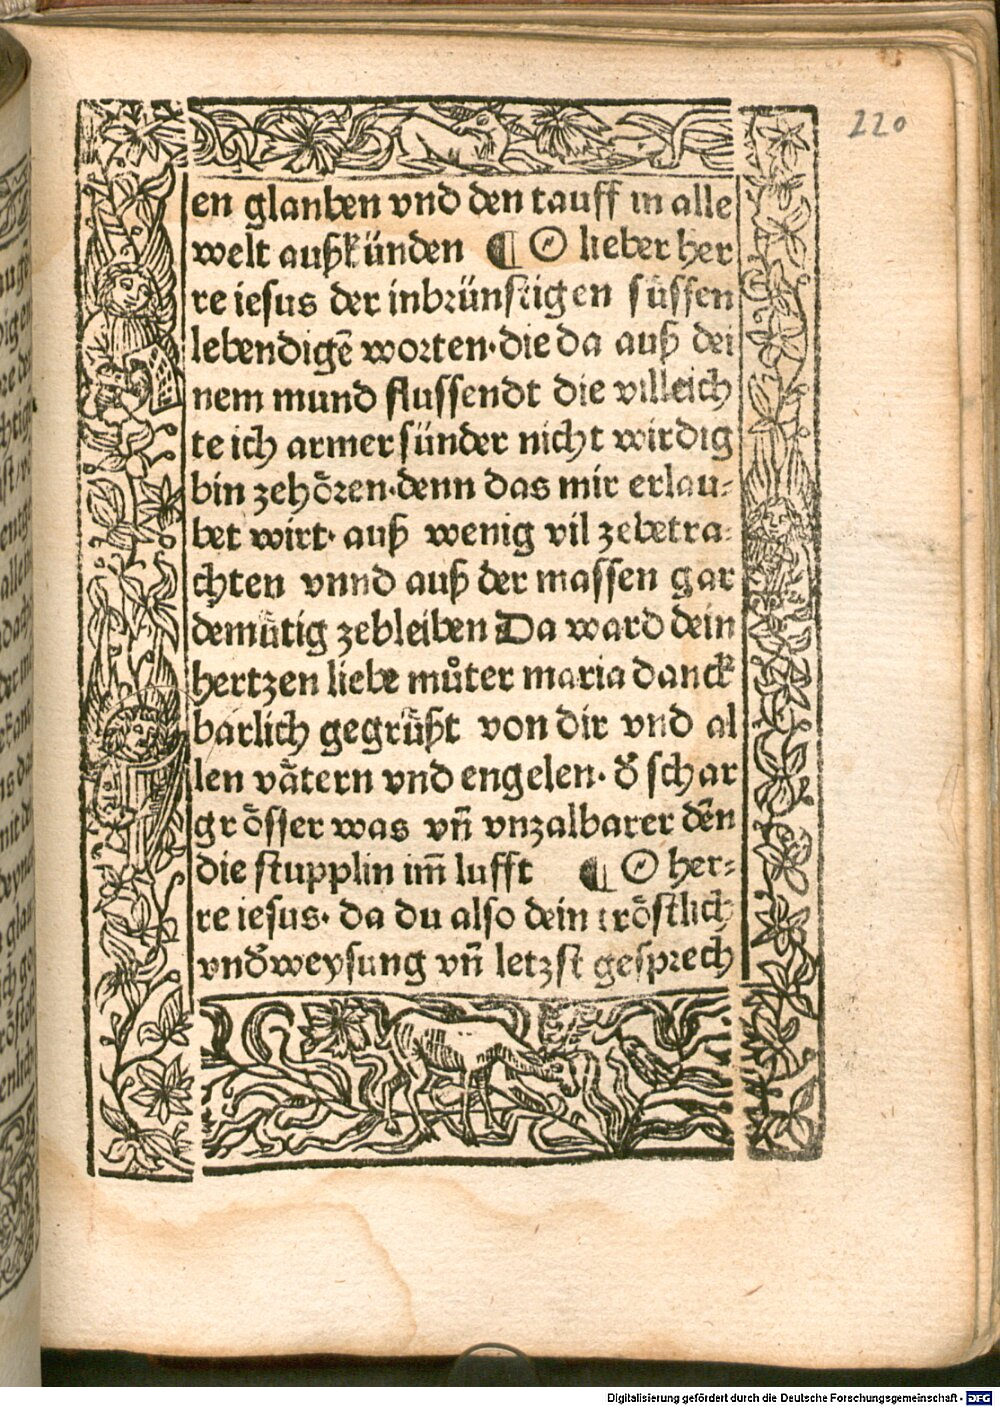 220
en glauben vnd den tauff in alle
welt außkünden ¶ O lieber her
re iesus der inbrünstigen süssen
lebendigē worten·die da auß dei
nem mund flussendt die villeich
te ich armer sünder nicht wirdig
bin zehören·denn das mir erlau⸗
bet wirt· auß wenig vil zebetra⸗
chten vnnd auß der massen gar
demuͤtig zebleiben Da ward dein
hertzen liebe muͦter maria danck
barlich gegruͤßt von dir vnd al
len vaͤtern vnd engelen· dˀ schar
groͤsser was vn̄ vnzalbarer dēn
die stupplin im̄ lufft ¶ O her⸗
re iesus· da du also dein troͤstlich
vndˀweysung vn̄ letzst gesprech
Digitalisierung gefördert durch die Deutsche Forschungsgemeinschaft - DFG